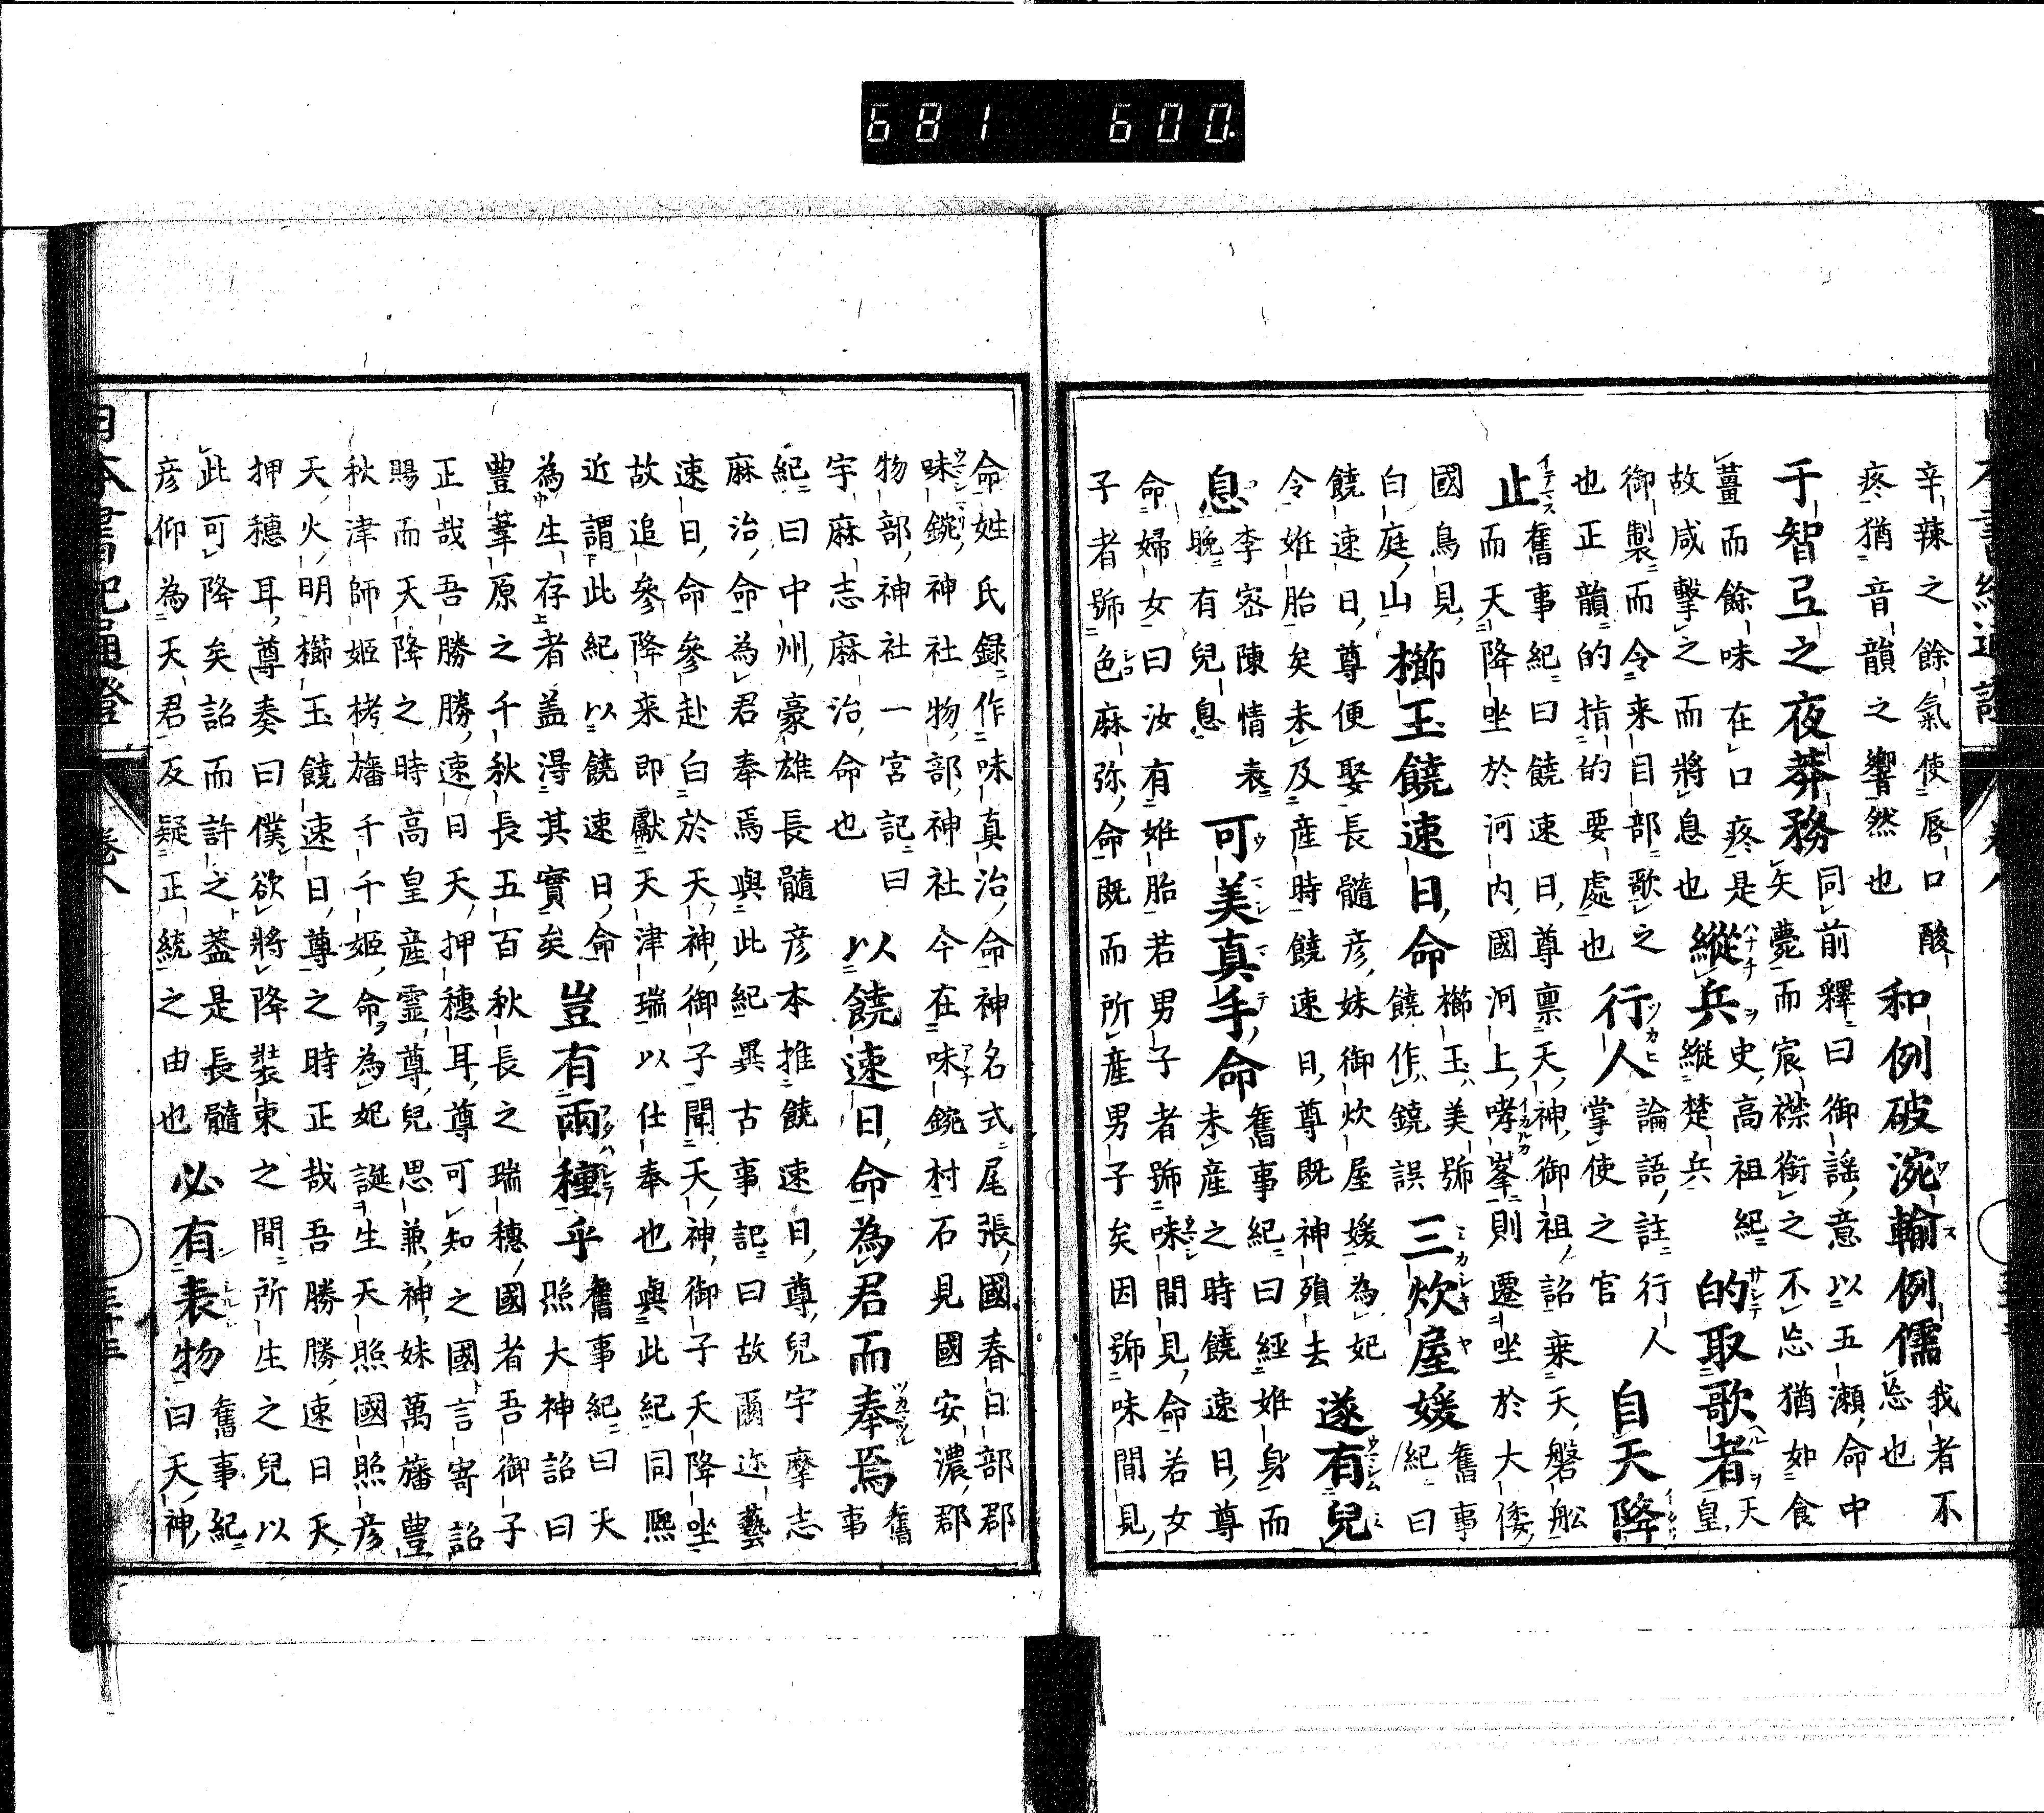 681 600.
辛辣之餘氣使唇口酸
疼猶音韻之響然也
和例破涴輸例儒
我者不
忘也
于智弖之夜莽務
同前釋曰御謡意以五瀬命中
矢薨而宸襟銜之不忘猶如食
薑而餘味在口疼是
故咸擊之而將息也
縱兵
史高祖紀
縱楚兵
的取歌者
天皇
御製而令来目部歌之
也正韻的㨖的要處也
行人
論語註行人
掌使之官
自天降
止
舊事紀曰饒速日尊禀天神御祖詔乗天磐舩
而天降坐於河内國河上哮峯則遷坐於大倭
國鳥見
白庭山
櫛玉饒速日命
櫛玉美號
饒作鐃誤
三炊屋媛
舊事
紀曰
饒速日尊便娶長髓彦妹御炊屋媛為妃
令姙胎矣未及産時饒速日尊既神殞去
遂有兒
息
李密陳情表
晚有兒息
可美真手命
舊事紀曰經姙身而
未産之時饒速日尊
命婦女曰汝有姙胎若男子者號味間見命若女
子者號色麻弥命既而所産男子矣因號味間見
命姓氏録作味真治命神名式尾張國春日部郡
味鋺神社物部神社今在味鋺村石見國安濃郡
物部神社一宮記曰
宇麻志麻治命也
以饒速日命為君而奉焉
舊
事
紀曰中州豪雄長髓彦本推饒速日尊兒宇摩志
麻治命命為君奉焉與此紀異古事記曰故爾迩藝
速日命參赴白於天神御子聞天神御子天降坐
故追參降来即獻天津瑞以仕奉也與此紀同熈
近謂此紀以饒速日命
為生存者盖得其實矣
豈有兩種乎
舊事紀曰天
照大神詔曰
豊葦原之千秋長五百秋長之瑞穗國者吾御子
正哉吾勝勝速日天押穗耳尊可知之國言寄詔
賜而天降之時高皇産霊尊兒思兼神妹萬旛豊
秋津師姫栲旛千千姫命為妃誕生天照國照彦
天火明櫛玉饒速日尊之時正哉吾勝勝速日天
押穗耳尊奏曰僕欲將降装束之間所生之兒以
此可降矣詔而許之蓋是長髓
彦仰為天君反疑正統之由也
必有表物
舊事紀
曰天神
日本書紀通證 卷八